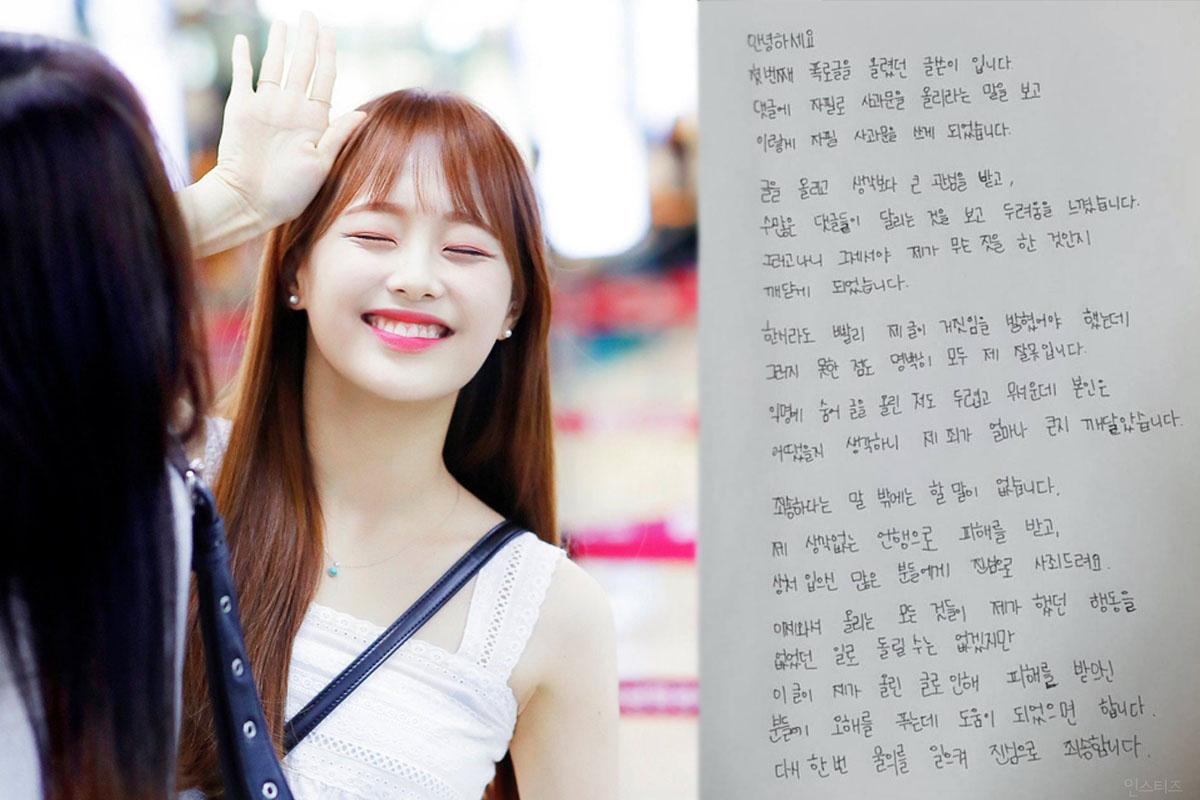 안녕하세요
첫번째 폭로글을 올렸던 글쓴이 입니다
댓글에 자필로 사과문을 올리라는 말을 보고
이렇게 자필 사과문을 쓰게 되었습니다.
글을 올리고 생각보다 큰 관심을 받고,
수많은 댓글들이 달리는 것을 보고 두려움을 느꼈습니다.
그러고나니 그제서야 제가 무슨 짓을 한 것인지
깨닫게 되었습니다.
한시라도 빨리 제 글이 거짓임을 밝혔어야 했는데
그러지 못한 점도 명백히 모두 제 잘못입니다.
익명에 숨어 글을 올린 저도 두렵고 무서운데 본인은
어땠을지 생각하니 제 죄가 얼마나 큰지 깨달았습니다.
죄송하다는 말 밖에는 할 말이 없습니다.
제 생각없는 언행으로 피해를 받고,
상처 입으신 많은 분들에게 진심으로 사죄드려요.
이제와서 올리는 모든 것들이 제가 했던 행동을
없었던 일로 돌릴 수는 없겠지만
이 글이 제가 올린 글로 인해 피해를 받으신
분들에 오해를 푸는데 도움이 되었으면 합니다.
다시 한번 물의를 일으켜 진심으로 죄송합니다.
인스티즈